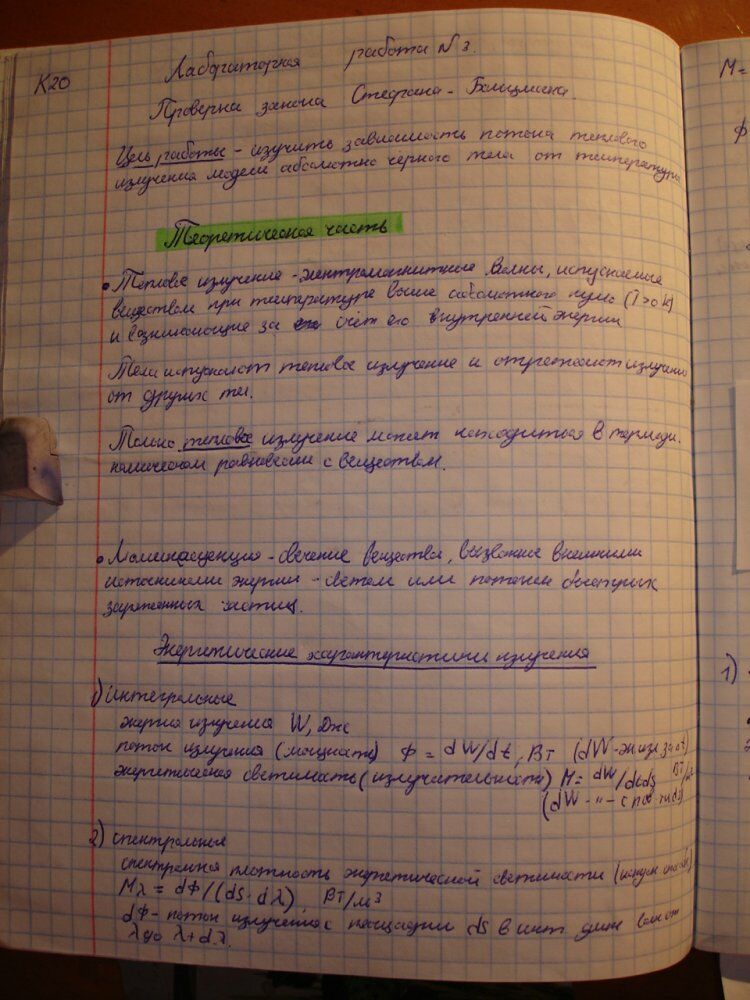 К20
Лабораторная работа №3.
Проверка закона Стефана-Больцмана.
Цель работы - изучить зависимость потока теплового
излучения модели абсолютно черного тела от температуры
Теоретическая часть
• Тепловое излучение - электромагнитные волны, испускаемые
веществом при температуре выше абсолютного нуля (T>0K)
и возникающие за счёт его внутренней энергии
Тела испускают тепловое излучение и отражают излучение
от других тел.
Только тепловое излучение может находиться в термоди-
намическом равновесии с веществом.
• Люминесценция - свечение вещества, вызванное внешними
источниками энергии - светом или потоком быстрых
заряженных частиц.
Энергетические характеристики излучения
1) интегральные
энергия излучения W, Дж
поток излучения (мощность) Ф = dW/dt, Вт (dW-эн изл за dt)
энергетическая светимость (излучательность) M = dW/dtds Вт/м²
(dW -"- с пов-ти ds)
2) спектральные
спектральная плотность энергетической светимости
Mλ = dФ/(dS·dλ), Вт/м³
dФ - поток излучения с площади ds в инт. длин волн от
λ до λ+dλ.
M=
Ф
1)